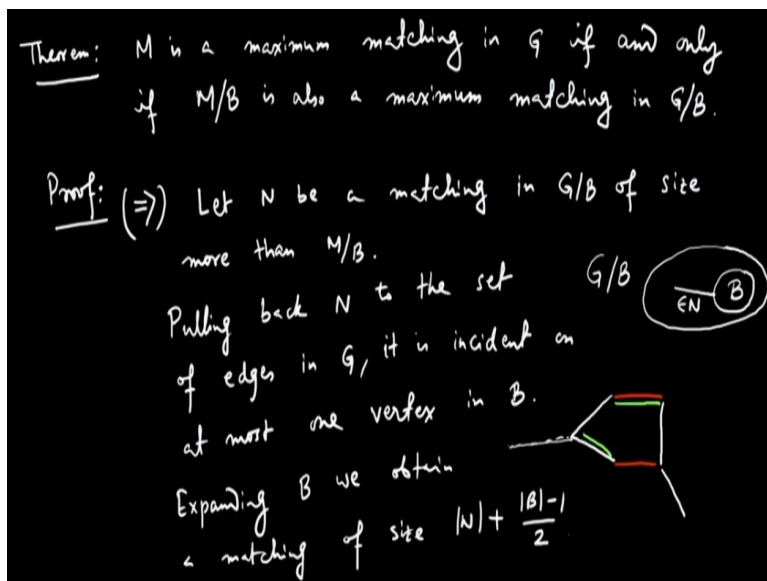 Theorem: M is a maximum matching in G if and only
if M/B is also a maximum matching in G/B.
Proof: (⇒) Let N be a matching in G/B of size
more than M/B.
G/B
∈N B
Pulling back N to the set
of edges in G, it is incident on
at most one vertex in B.
Expanding B we obtain
a matching of size |N| + (|B|-1)/2